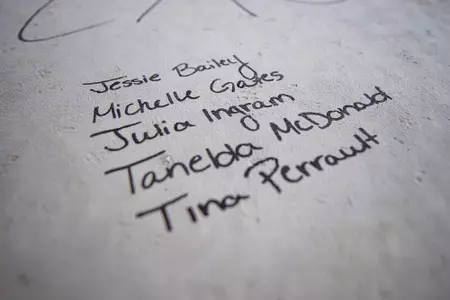 Jessie Bailey
Michelle Gates
Julia Ingram
Tanelda McDonald
Tina Perrault